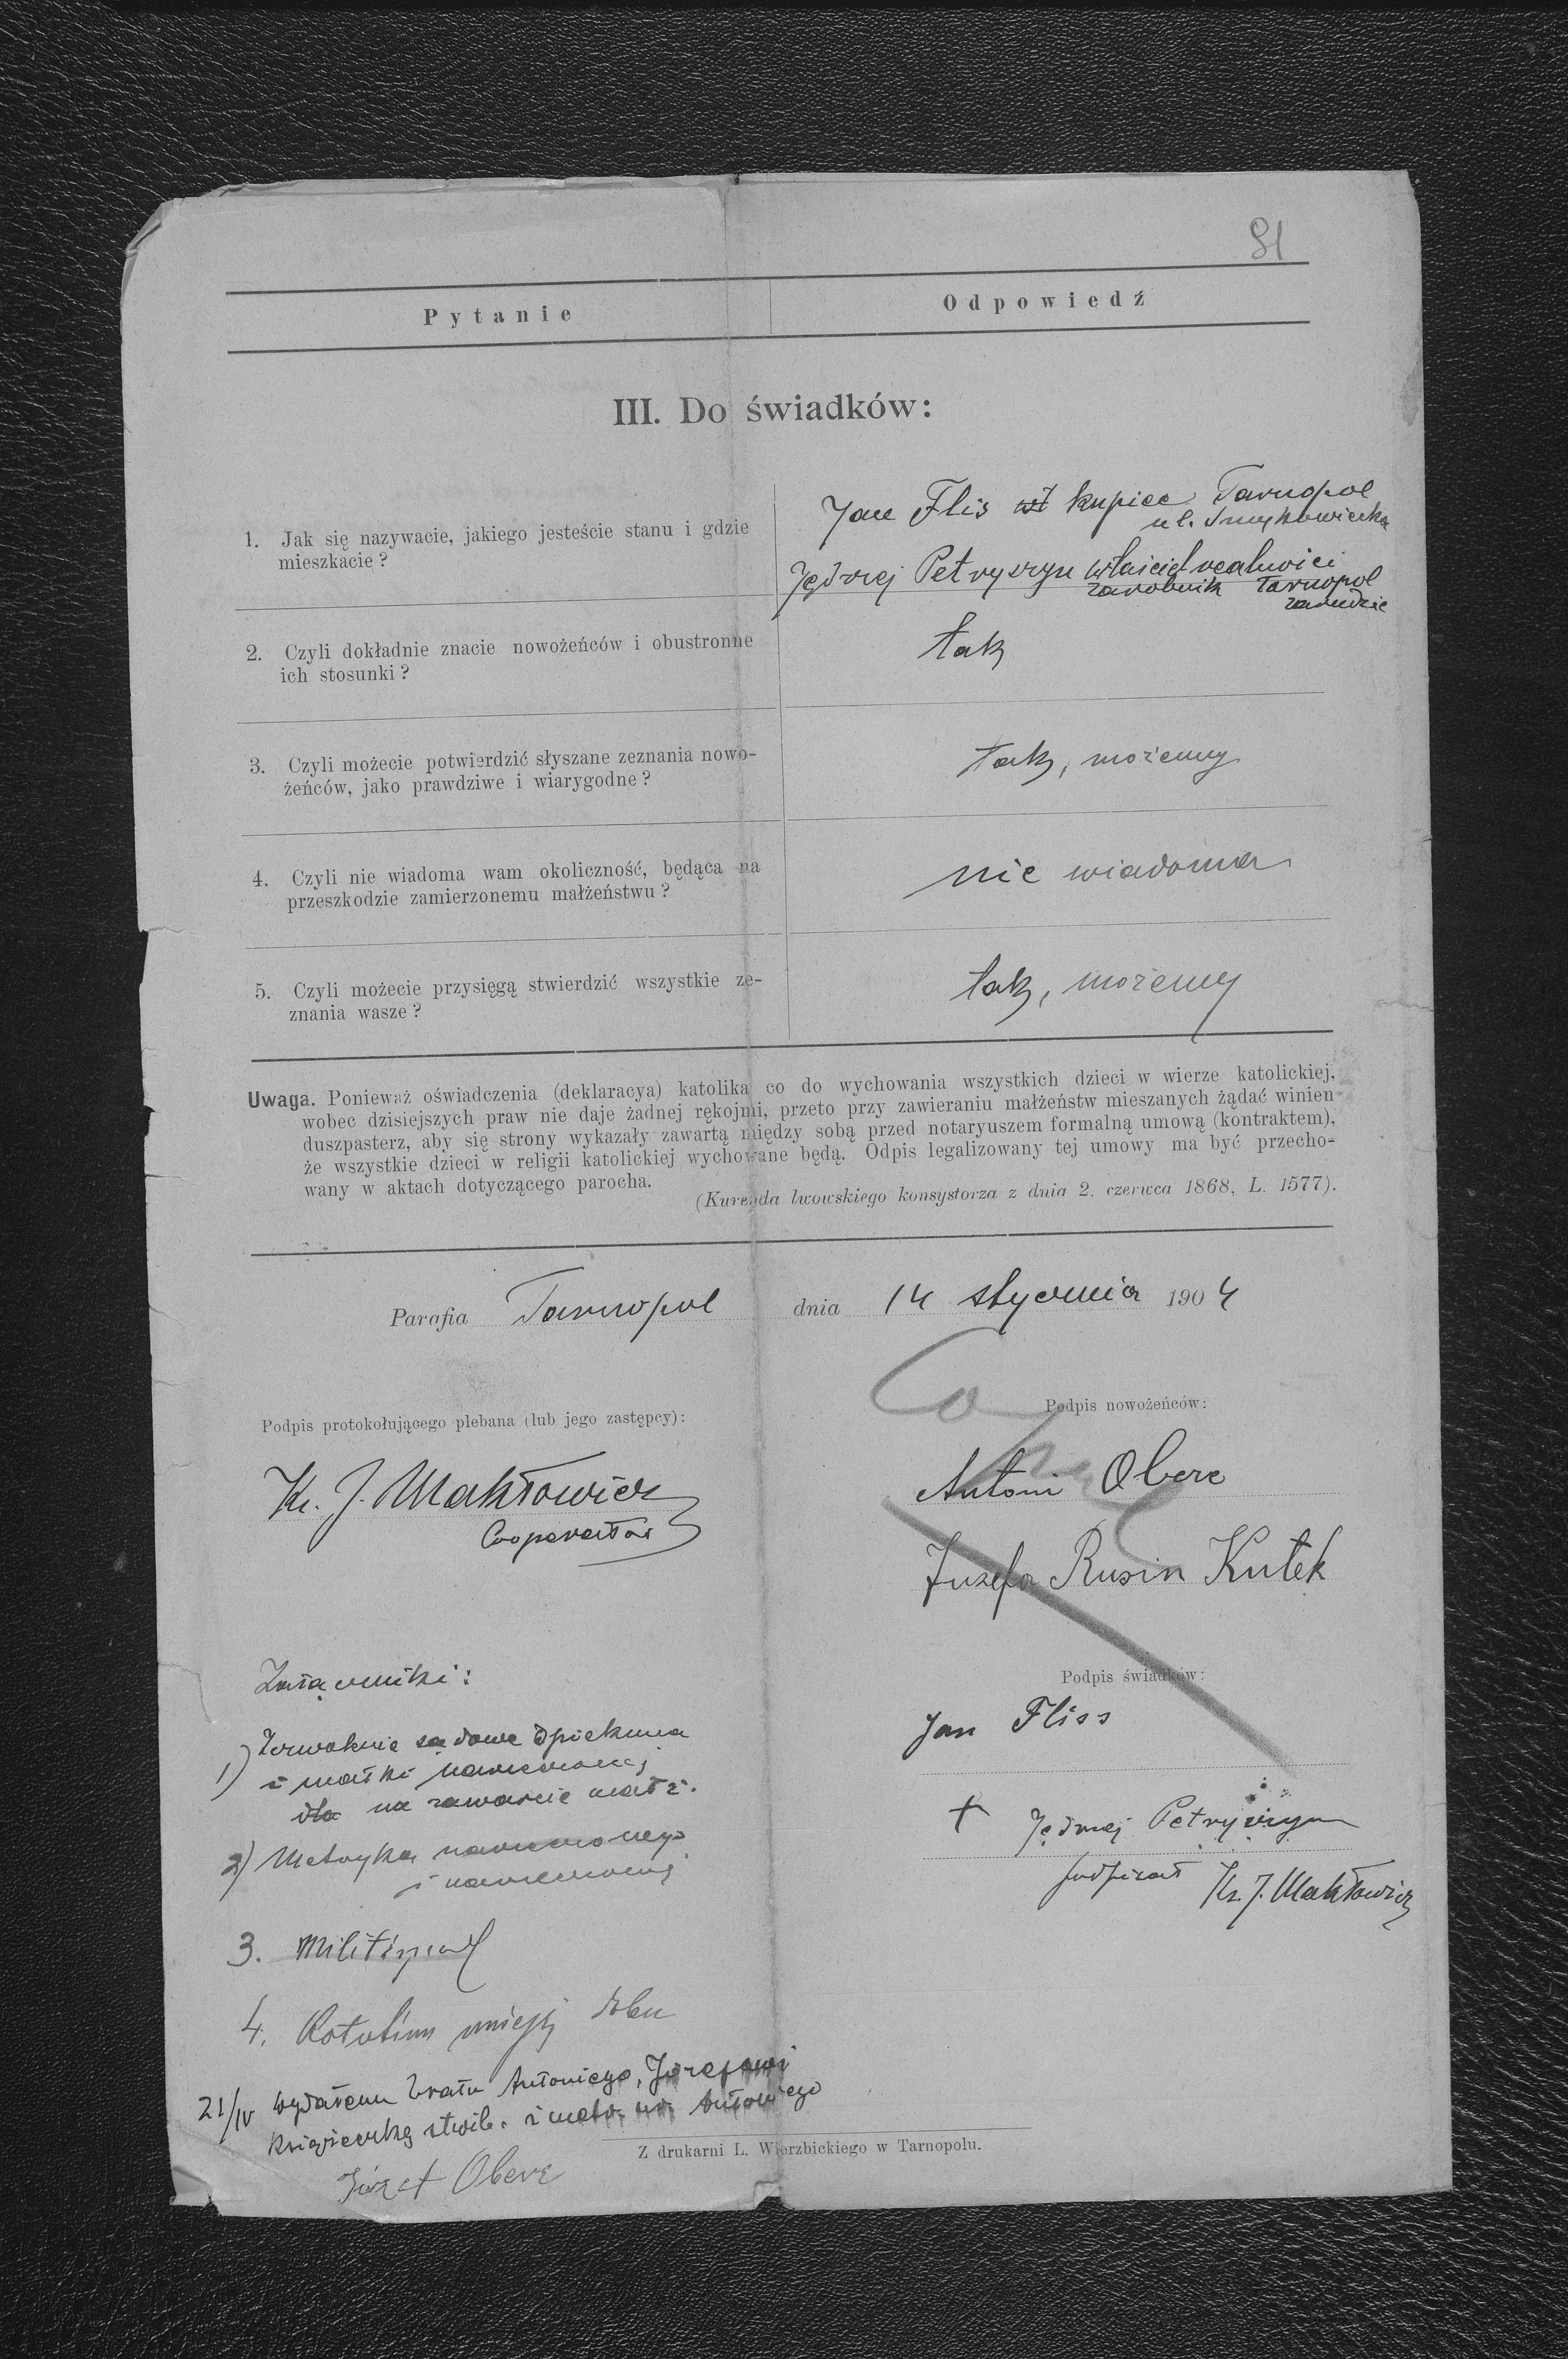 81
Pytanie
Odpowiedź
III. Do świadków:
1. Jak się nazywacie, jakiego jesteście stanu i gdzie
mieszkacie?
Jan Flis wł kupiec Tarnopol
ul. Smykowiecka
Jędrzej Petryszyn właściciel realności
zarobnik Tarnopol
zarudzie
2. Czyli dokładnie znacie nowożeńców i obustronne
ich stosunki?
tak
3. Czyli możecie potwierdzić słyszane zeznania nowo-
żeńców, jako prawdziwe i wiarygodne?
tak, możemy
4. Czyli nie wiadoma wam okoliczność, będąca na
przeszkodzie zamierzonemu małżeństwu?
nie wiadoma
5. Czyli możecie przysięgą stwierdzić wszystkie ze-
znania wasze?
tak, możemy
Uwaga. Ponieważ oświadczenia (deklaracya) katolika co do wychowania wszystkich dzieci w wierze katolickiej,
wobec dzisiejszych praw nie daje żadnej rękojmi, przeto przy zawieraniu małżeństw mieszanych żądać winien
duszpasterz, aby się strony wykazały zawartą między sobą przed notaryuszem formalną umową (kontraktem),
że wszystkie dzieci w religii katolickiej wychowane będą. Odpis legalizowany tej umowy ma być przecho-
wany w aktach dotyczącego parocha.
(Kurenda lwowskiego konsystorza z dnia 2. czerwca 1868, L. 1577).
Parafia Tarnopol dnia 14 stycznia 1904
Podpis protokołującego plebana (lub jego zastępcy):
Ks. J. Makłowicz
Cooperator
Podpis nowożeńców:
Antoni Oberc
Juzefa Rusin Kutek
Podpis świadków:
Jan Fliss
+ Jędrzej Petryszyn
podpisał Ks. J. Makłowicz
Załączniki:
1) Zezwolenie sądowe opiekuna
i matki narzeczonej
dla na zawarcie małż.
2) Metryka narzeczonego
i narzeczonej
3.
4.
21/IV wydałem bratu Antoniego, Józefowi
książeczkę i metr. Antoniego
Józef Oberc
Z drukarni L. Wierzbickiego w Tarnopolu.